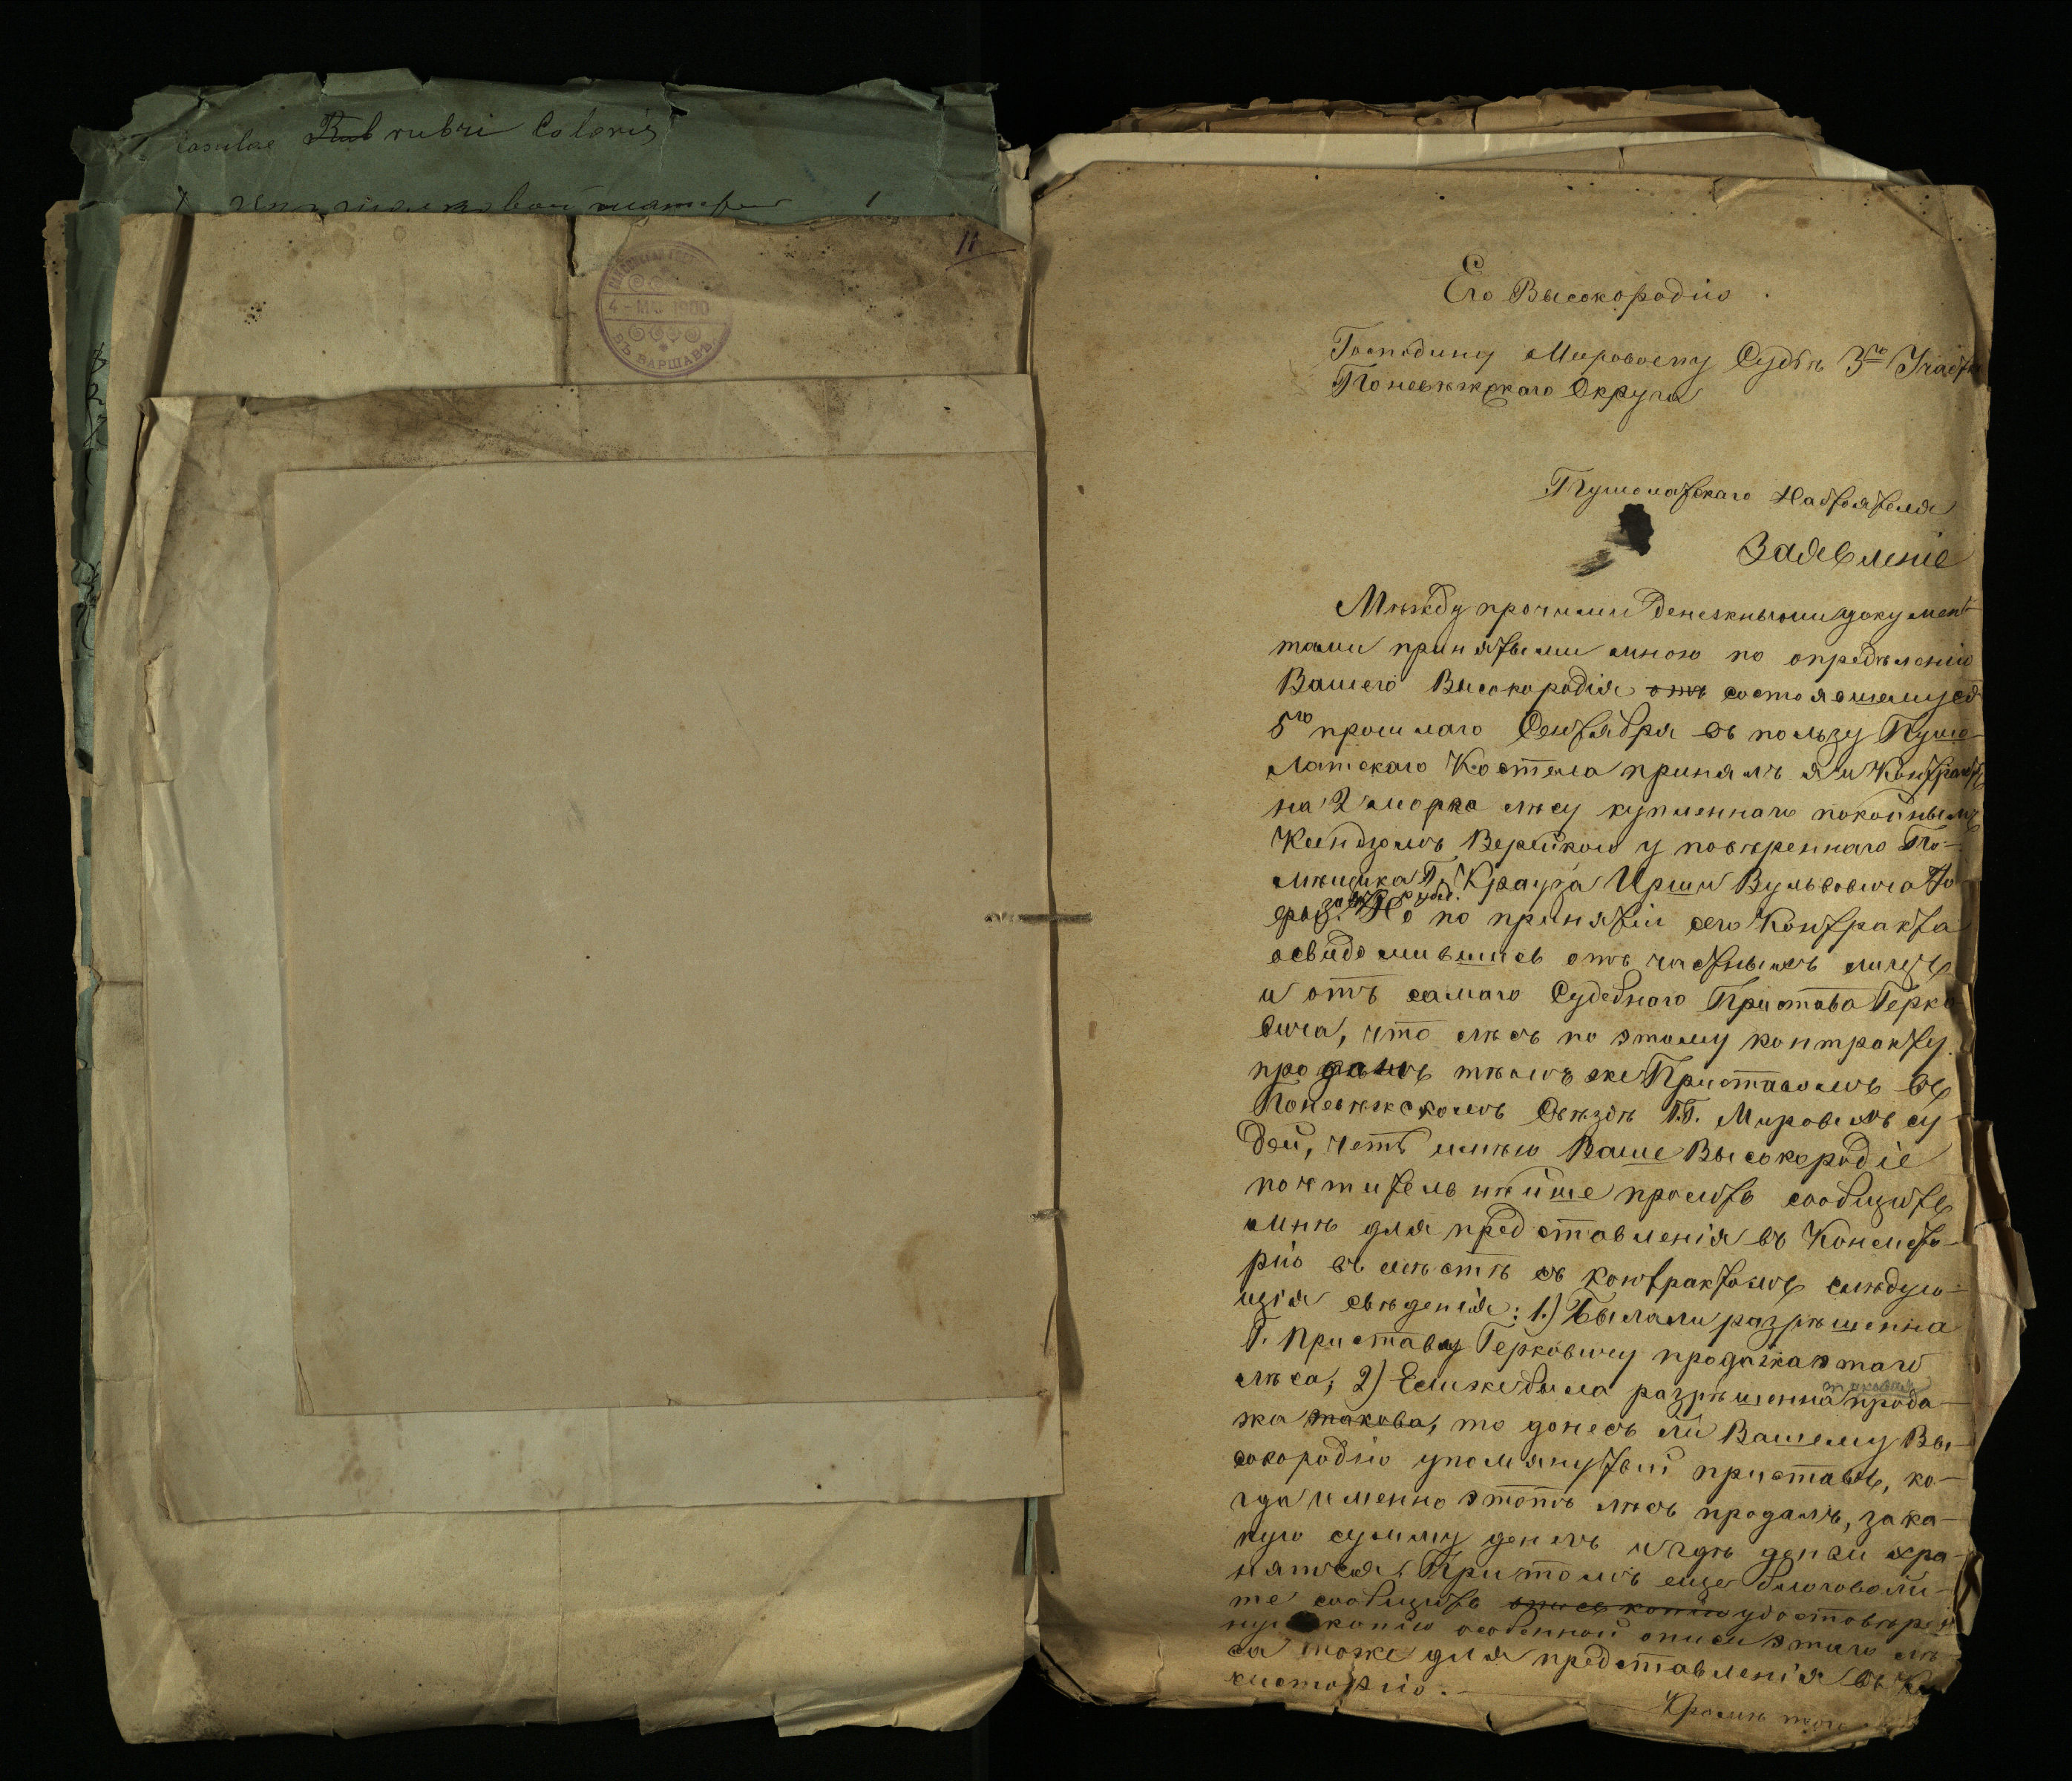 Casulae Rub rubri Coloris
11
4 - МАЙ 1900
ВЪ ВАРШАВѢ
Его Высокородію
Господину Мировому Судьѣ 3го Участка
Поневѣжскаго Округа
Пушолатскаго Настоятеля
Заявленіе
Мѣжду прочими денежными докумен-
тами принятыми мною по опредѣленію
Вашего Высокородія отъ состоявшемуся
5го прошлаго Сентября въ пользу Пушо-
латскаго Костела принялъ я и Контрактъ
на 2 морга лѣсу купленнаго покойнымъ
Ксендзомъ Верейкою у повѣреннаго По-
мѣщика Г. Крауза Ирши Вульфовича
Но по принятіи сего Контракта
освидомившись отъ частныхъ лицъ
и отъ самаго Судебнаго Пристава Герко-
вича, что лѣсъ по этому контракту
проданъ тѣмъ же Приставомъ въ
Поневѣжскомъ Съѣздѣ Г.Г. Мировыхъ су
дей, честь имѣю Ваше Высокородіе
почтительнѣйше просить сообщить
мнѣ для представленія въ Консисто-
рію въ мѣстѣ съ контрактомъ слѣдую-
щія свѣденія: 1.) Была ли разрѣшенна
Г. Приставу Герковичу продажа этаго
лѣса; 2) Если же была разрѣшенна таковая прода-
жа такова, то донесъ ли Вашему Вы-
сокородію упомянутый приставъ, ко-
гда именно этотъ лѣсъ продалъ, за ка-
кую сумму денегъ и гдѣ деньги хра-
нятся. Притомъ еще благоволи-
те сообщить опись копію удостовѣрен
ную копію особенной описи этаго лѣ-
са тоже для представленія въ Кон
систорію.
Кромѣ того